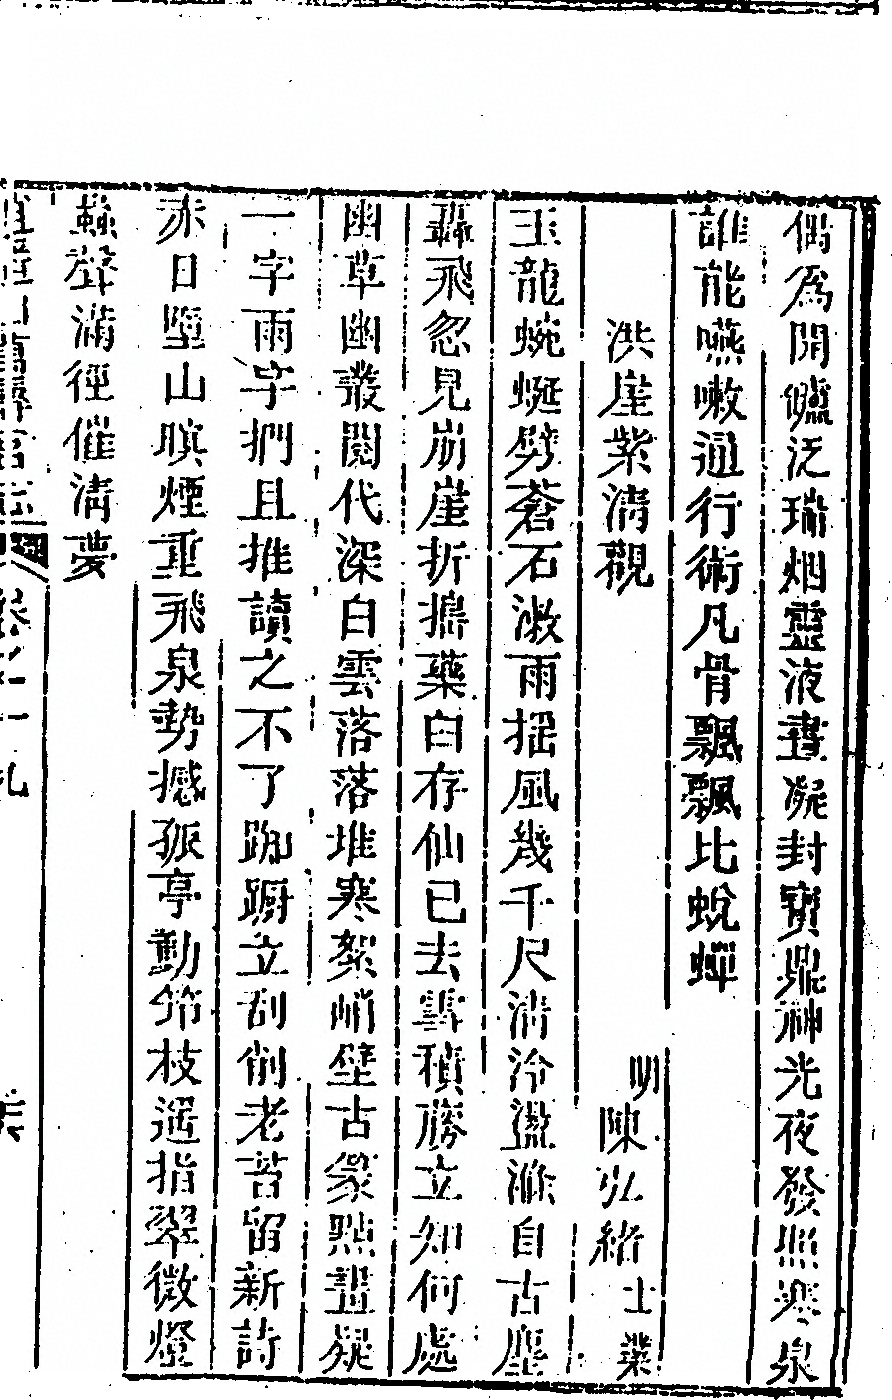 偶為開爐泛瑞烟靈液晝凝封寶鼎神光夜發照寒泉
誰能嚥嗽通行術凡骨飄飄比蛻蟬
洪崖紫清觀 明 陳弘緒 士業
玉龍蜿蜒劈蒼石漱雨揺風幾千尺清泠盪滌自古塵
轟飛忽見崩崖折搗藥臼存仙已去雲積勝立知何處
幽草幽叢閱代深白雲落落堆寒絮峭壁古篆點畫疑
一字兩字捫且推讀之不了踟蹰立刮削老苔留新詩
赤日墮山暝煙重飛泉勢撼孤亭動筇枝遥指翠微燈
蟲聲滿徑催淸夢
卷之一九